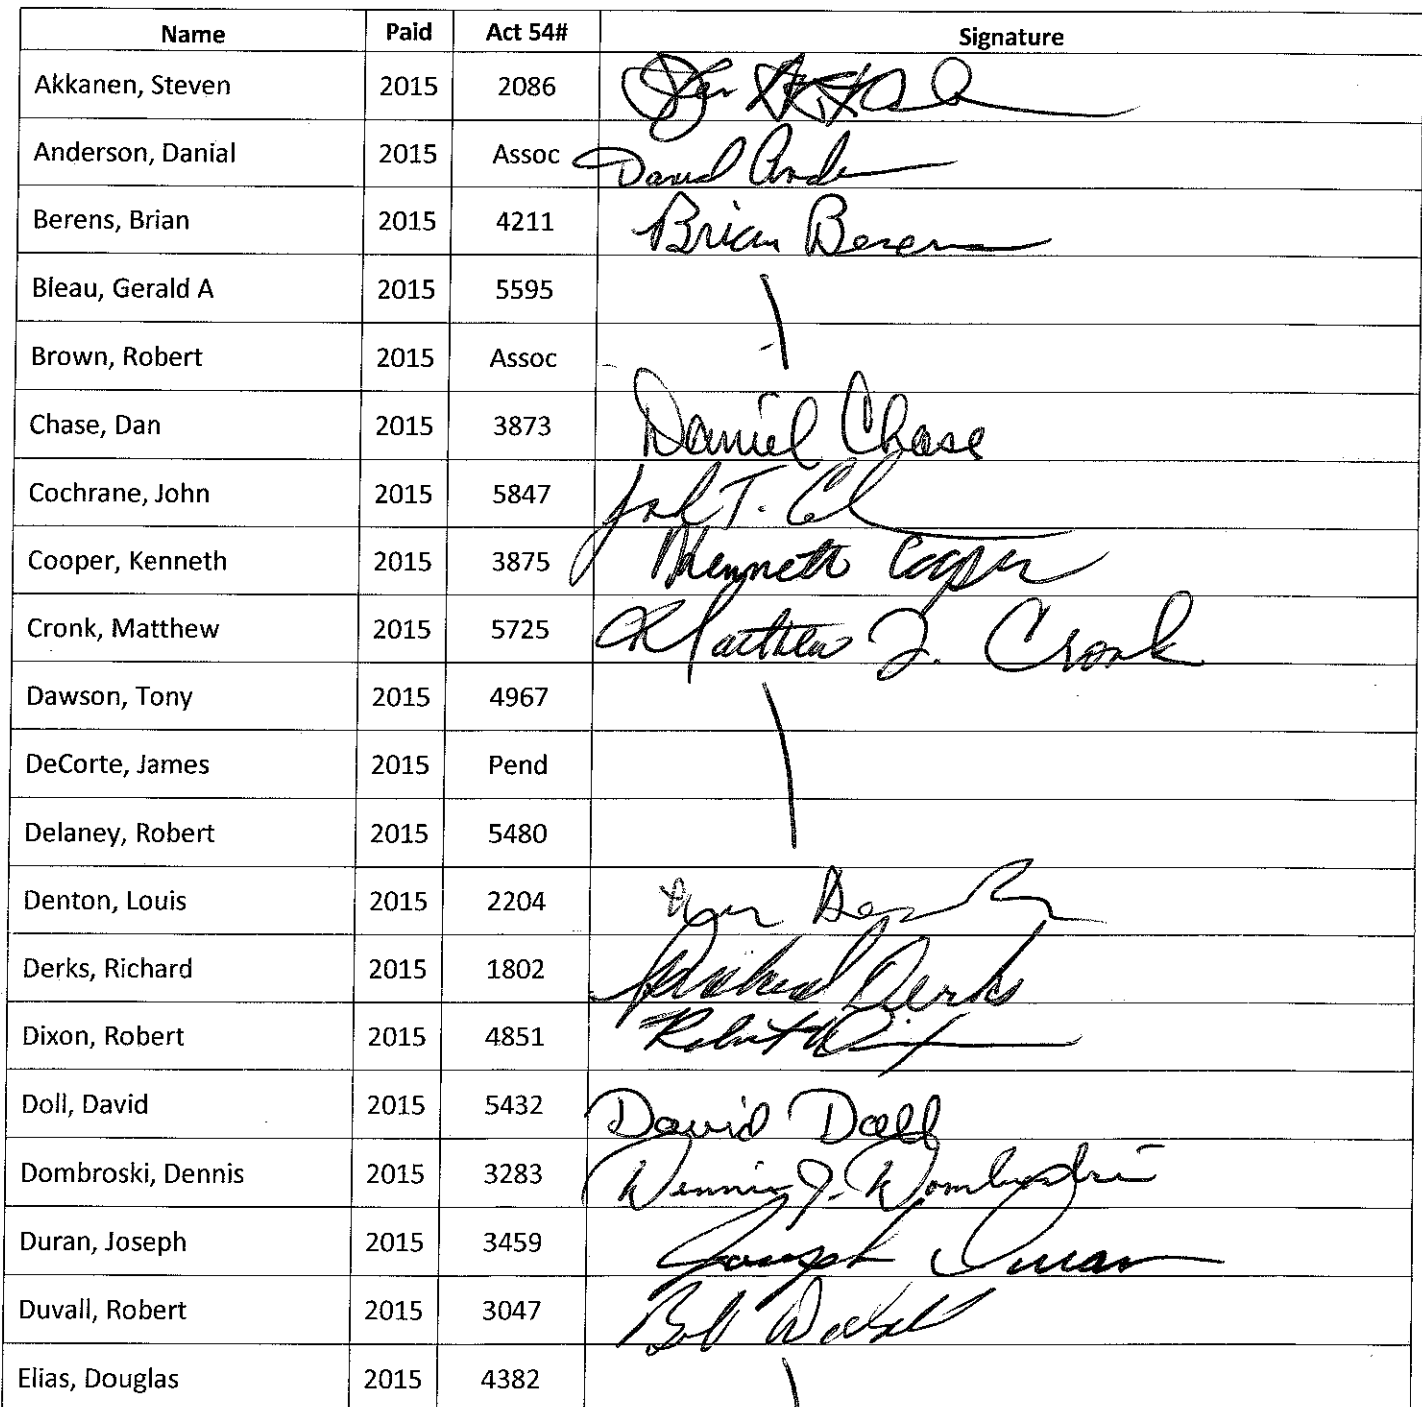 Name Paid Act 54# Signature
Akkanen, Steven 2015 2086
Anderson, Danial 2015 Assoc
Berens, Brian 2015 4211 Brian Berens
Bleau, Gerald A 2015 5595
Brown, Robert 2015 Assoc
Chase, Dan 2015 3873 Daniel Chase
Cochrane, John 2015 5847 John T.
Cooper, Kenneth 2015 3875 Kenneth Cooper
Cronk, Matthew 2015 5725 Matthew J. Cronk
Dawson, Tony 2015 4967
DeCorte, James 2015 Pend
Delaney, Robert 2015 5480
Denton, Louis 2015 2204
Derks, Richard 2015 1802 Richard Derks
Dixon, Robert 2015 4851 Robert
Doll, David 2015 5432 David Doll
Dombroski, Dennis 2015 3283 Dennis J. Dombroski
Duran, Joseph 2015 3459 Joseph Duran
Duvall, Robert 2015 3047 Bob Duvall
Elias, Douglas 2015 4382